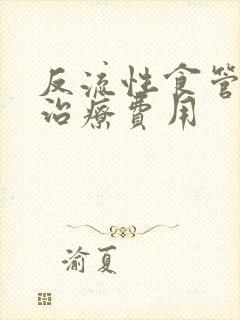 反流性食管
治療費用
渝夏